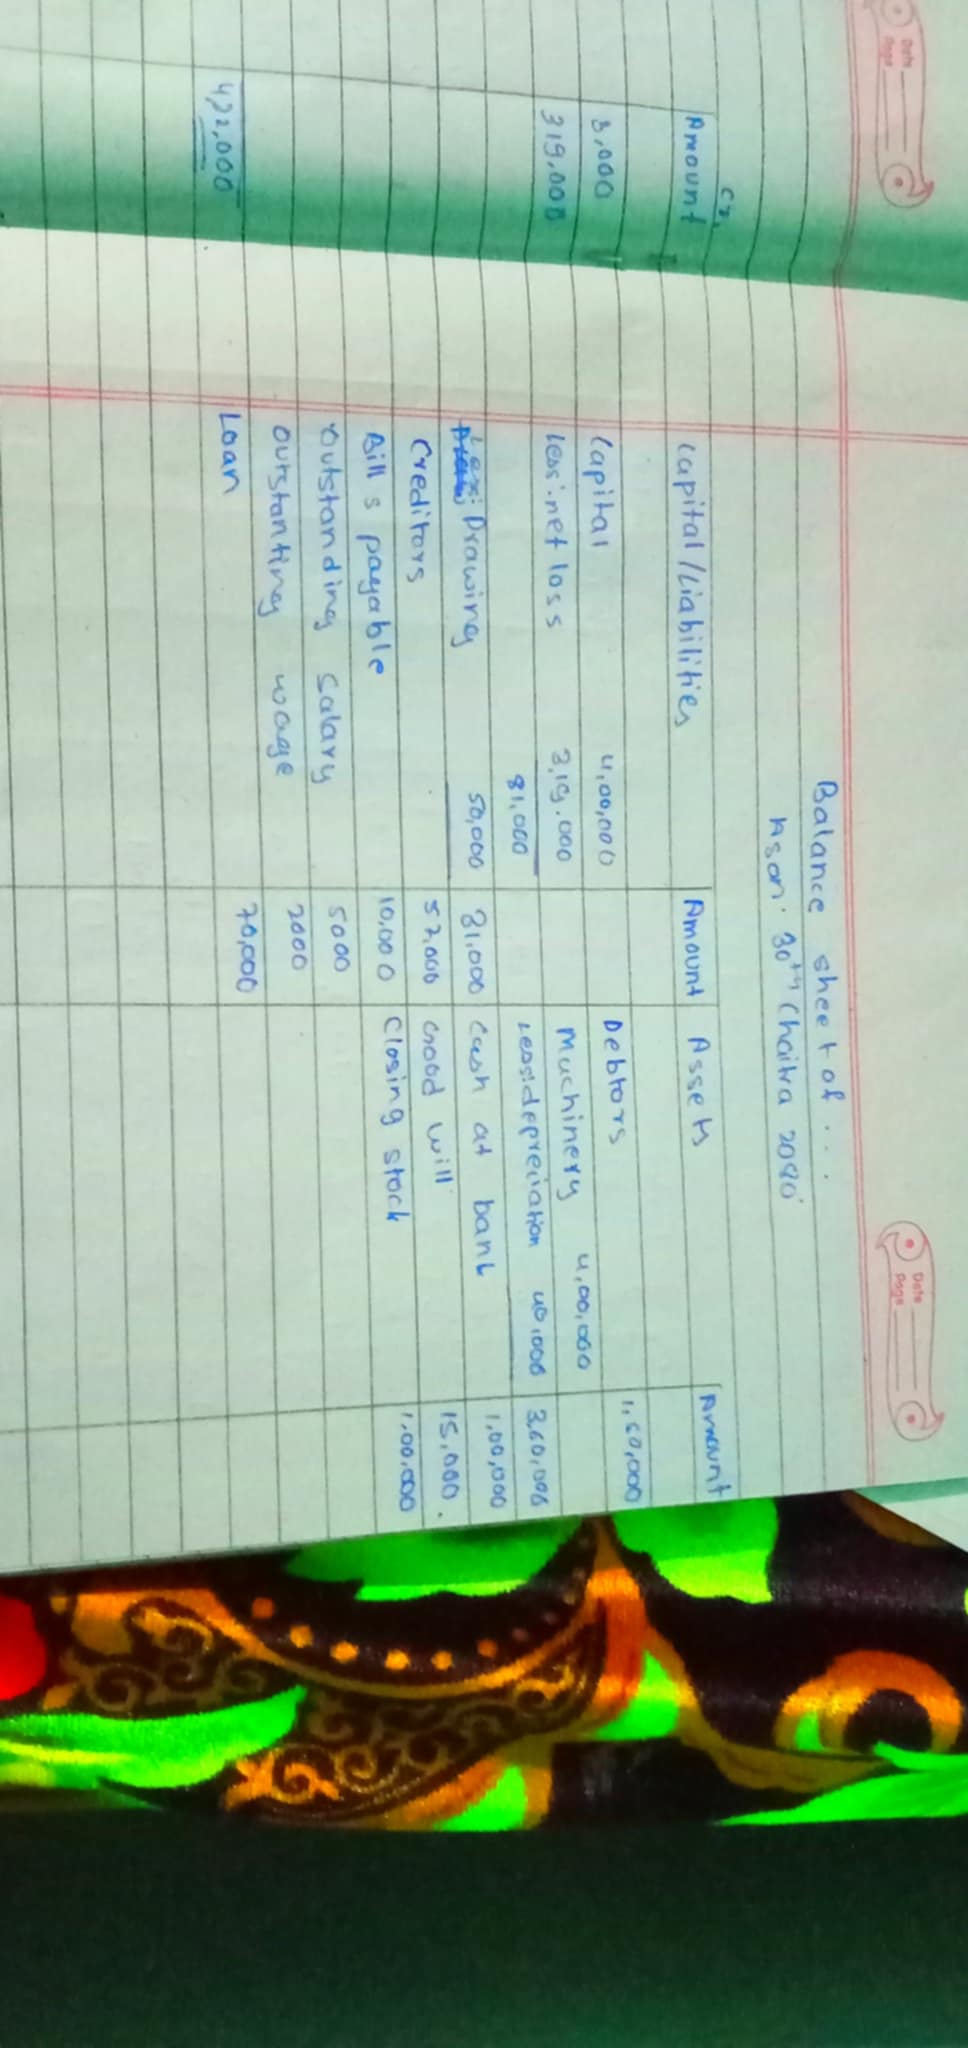 Date
Page
Cr.
Amount
3,000
319,000
422,000
Date
Page
Balance sheet of ....
As on 30th Chaitra 2080
Capital/Liabilities Amount Assets Amount
Capital 4,00,000 Debtors 1,50,000
Less: net loss 3,19,000 Muchinery 4,00,000
81,000 Less: depreciation 40,000 3,60,000
Less: Drawing 50,000 31,000 Cash at bank 1,00,000
Creditors 57,000 Good will 15,000
Bills payable 10,000 Closing stock 1,00,000
Outstanding Salary 5000
Outstanting wage 2000
Loan 70,000